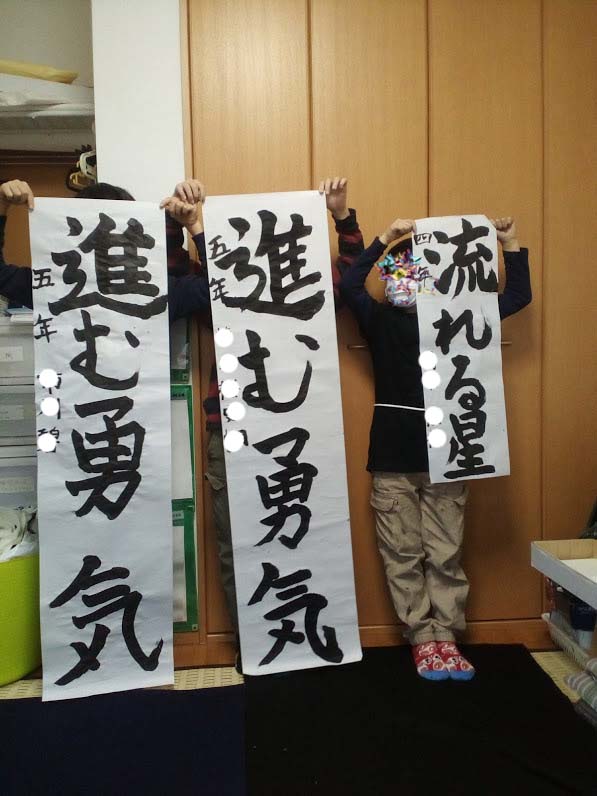 流れる星
四年
進む勇気
五年
進む勇気
五年